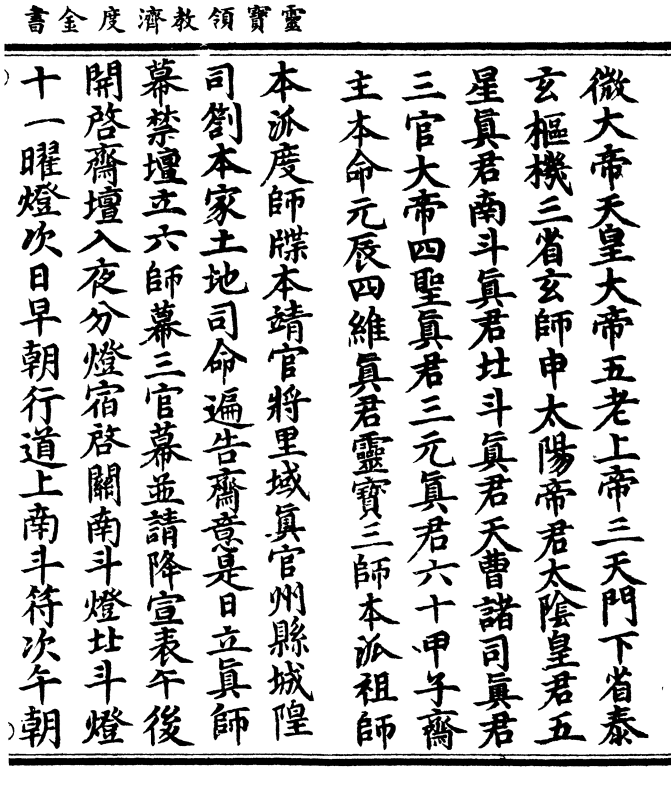 靈寶領教濟度金書
微大帝天皇大帝五老上帝三天門下省泰
玄樞機三省玄師申太陽帝君太陰皇君五
星眞君南斗眞君北斗眞君天曹諸司眞君
三官大帝四聖眞君三元眞君六十甲子齋
主本命元辰四維眞君靈寶三師本派祖師
本派度師牒本靖官將里域眞官州縣城隍
司劄本家土地司命遍告齋意是日立眞師
幕禁壇立六師幕三官幕並請降宣表午後
開啓齋壇入夜分燈宿啓關南斗燈北斗燈
十一曜燈次日早朝行道上南斗符次午朝